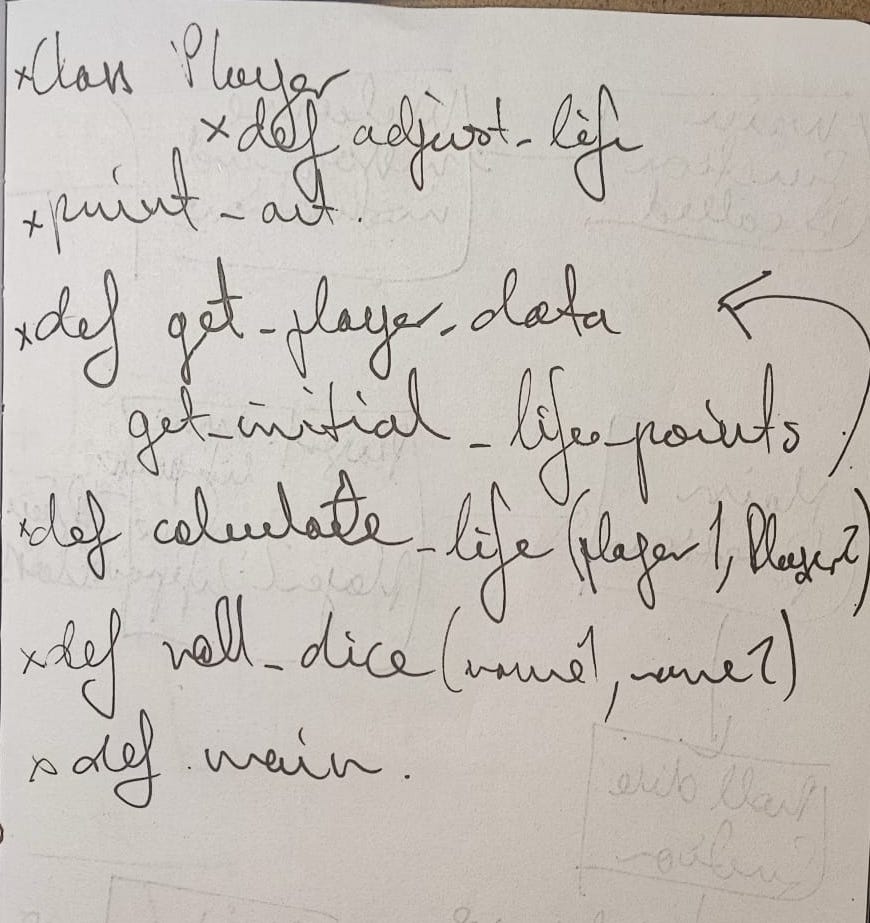 ×Class Player
×def adjust_life
×print_art.
×def get_player_data
get_initial_life_points
×def calculate_life(player1, Player2)
×def roll_dice(name1, name2)
×def main.